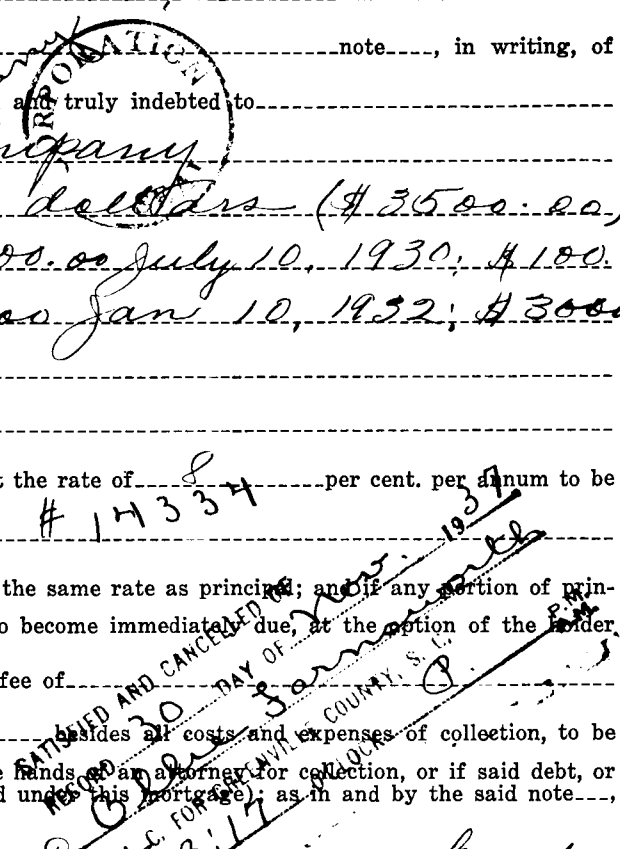 note____, in writing, of
and truly indebted to
mpany
dollars ($3500.00)
00.00 July 10, 1930; $100.
00 Jan 10, 1932; $3000
the rate of 8 per cent. per annum to be
# 14334
the same rate as principal; and if any portion of prin-
o become immediately due, at the option of the holder
fee of
besides all costs and expenses of collection, to be
hands of an attorney for collection, or if said debt, or
d under this mortgage); as in and by the said note___,
SATISFIED AND CANCELLED OF
RECORD 30 DAY OF Nov. 1937
Ollie Farnsworth
C. FOR GREENVILLE COUNTY, S. C.
:17 O'CLOCK P. M.